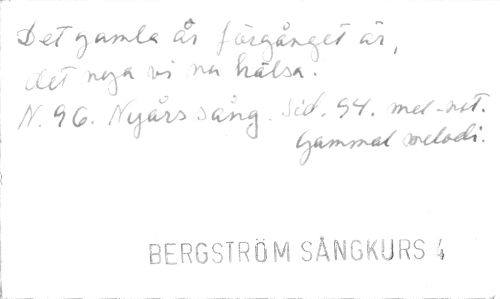 Det gamla år förgånget är,
det nya vi nu hälsa.
N. 96. Nyårssång. Sid. 94. mel-not.
Gammal melodi.
BERGSTRÖM SÅNGKURS 4